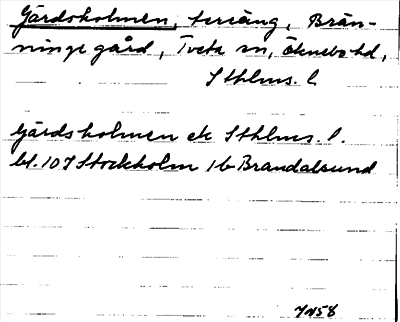 Gärdsholmen, terräng, Brän-
ninge gård, Tveta sn, Öknebo hd,
Sthlms. l.
Gärdsholmen ek Sthlms. l.
bl. 107 Stockholm 1b Brandalsund
JN58